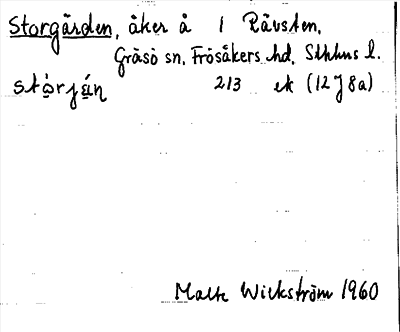 Storgården, åker å 1 Rävsten,
Gräsö sn, Frösåkers hd, Sthlms l.
stórján 213 ek (12J8a)
Malte Wickström 1960